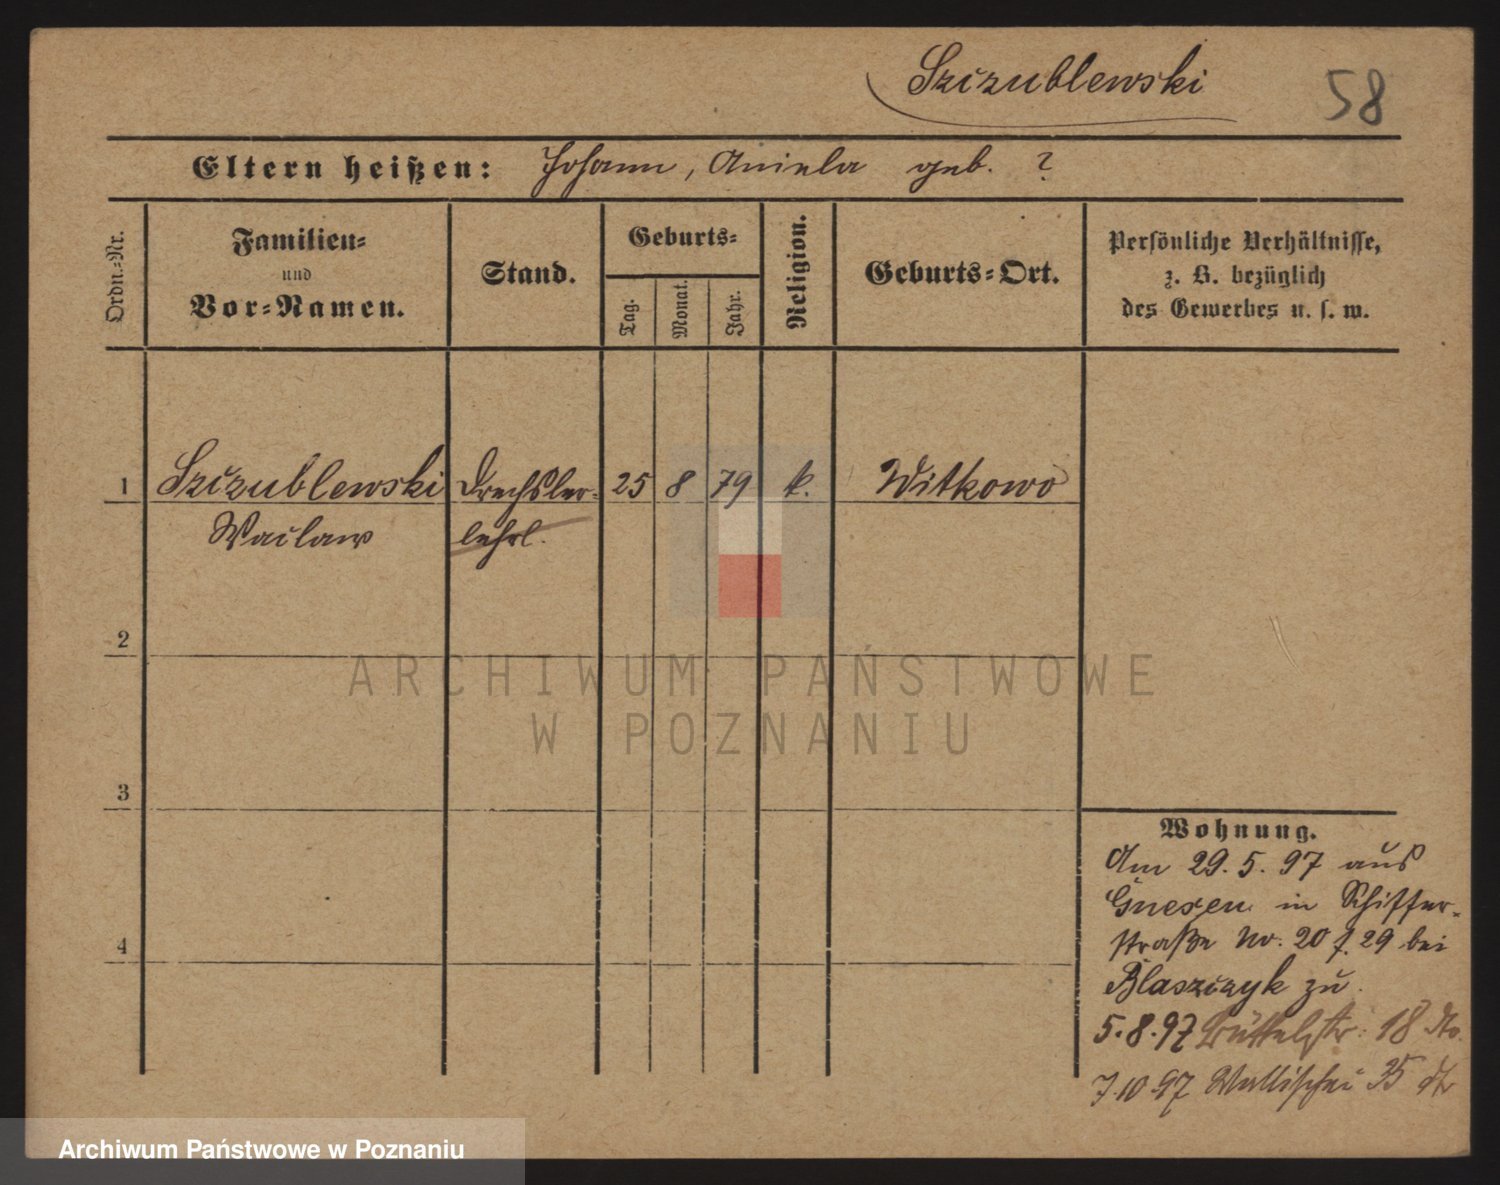 Szczublewski
58
Eltern heißen: Johann, Aniela geb. ?
Ordn.-Nr.
Familien-
und
Vor-Namen.
Stand.
Geburts-
Tag.
Monat.
Jahr.
Religion.
Geburts-Ort.
Persönliche Verhältnisse,
z. B. bezüglich
des Gewerbes u. s. w.
1 Szczublewski Drechsler- 25 8 79 k. Witkowo
Wacław lehrl.
2
3
4
Wohnung.
Am 29.5.97 aus
Gnesen in Schiffer-
straße No. 20 f. 29 bei
Blaszczyk zu.
5.8.97 Büttelstr. 18 dto.
7.10.97 Wallischei 35 dt
ARCHIWUM PAŃSTWOWE
W POZNANIU
Archiwum Państwowe w Poznaniu